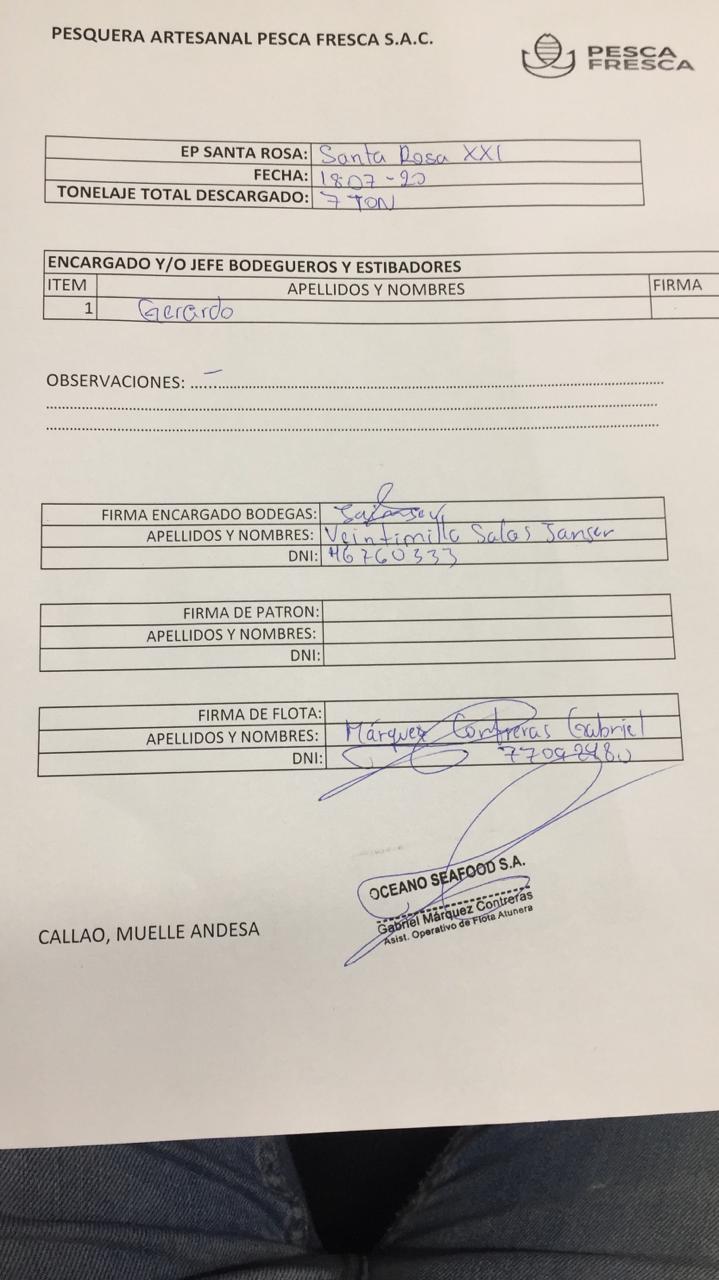 PESQUERA ARTESANAL PESCA FRESCA S.A.C.
PESCA
FRESCA
EP SANTA ROSA: Santa Rosa XXI
FECHA: 18-07-20
TONELAJE TOTAL DESCARGADO: 7 TON
ENCARGADO Y/O JEFE BODEGUEROS Y ESTIBADORES
ITEM APELLIDOS Y NOMBRES FIRMA
1 Gerardo
OBSERVACIONES: –
FIRMA ENCARGADO BODEGAS:
APELLIDOS Y NOMBRES: Veintimilla Salas Janser
DNI: 46760333
FIRMA DE PATRON:
APELLIDOS Y NOMBRES:
DNI:
FIRMA DE FLOTA:
APELLIDOS Y NOMBRES: Márquez Contreras Gabriel
DNI:
OCEANO SEAFOOD S.A.
Gabriel Márquez Contreras
Asist. Operativo de Flota Atunera
CALLAO, MUELLE ANDESA